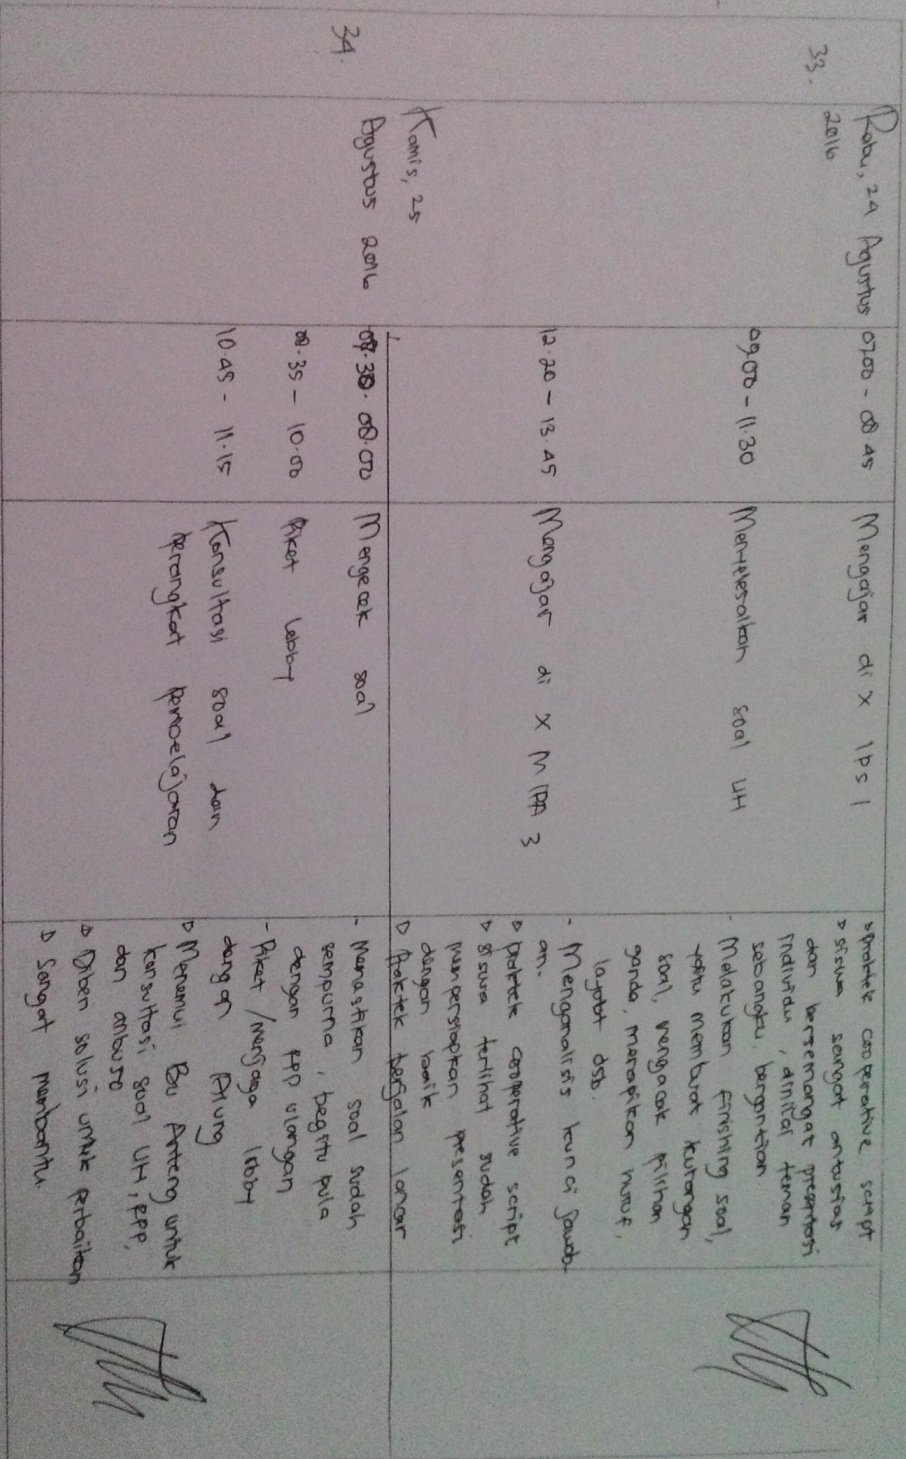 33.
Rabu, 24 Agustus
2016
07.00 - 08.45
Mengajar di X IPS 1
▷ Praktek cooperative script
▷ Siswa sangat antusias
dan bersemangat presentasi
individu, dinilai teman
sebangku, bergantian
09.00 - 11.30
Menyelesaikan soal UH
- Melakukan finishing soal,
yaitu membuat kurangan
soal, mengacak pilihan
ganda, merapikan huruf,
layout dsb.
- Menganalisis kunci jawab-
an.
12.20 - 13.45
Mengajar di X MIPA 3
▷ praktek cooperative script
▷ siswa terlihat sudah
mempersiapkan presentasi
dengan baik
▷ Praktek berjalan lancar
34.
Kamis, 25
Agustus 2016
08.00
Mengecek soal
- Memastikan soal sudah
sempurna, begitu pula
dengan RPP ulangan
08.35 - 10.00
Piket lobby
- Piket / menjaga lobby
dengan
10.45 - 11.15
Konsultasi soal dan
perangkat pembelajaran
▷ Menemui Bu Anteng untuk
konsultasi soal UH, RPP,
dan
▷ Diberi solusi untuk perbaikan
▷ Sangat membantu.